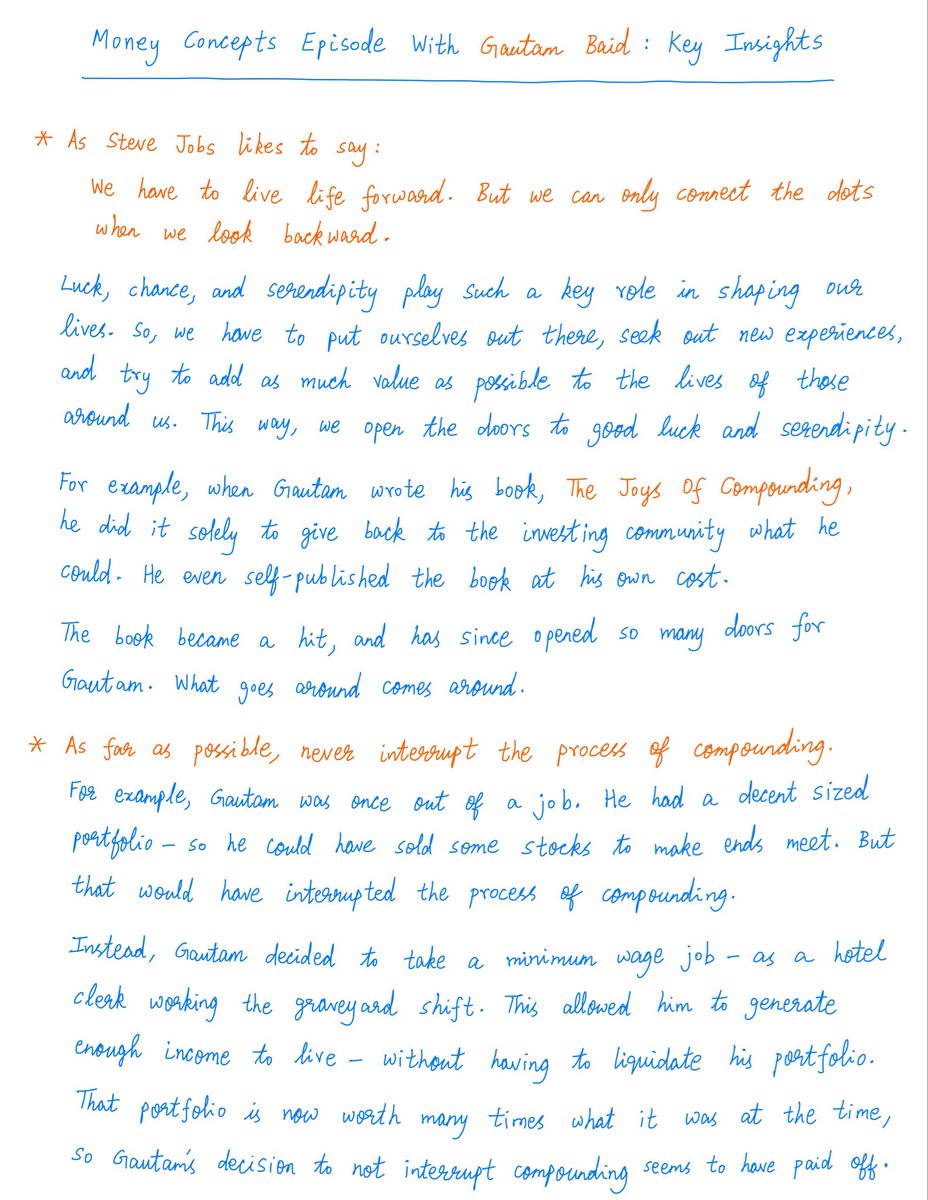 Money Concepts Episode With Gautam Baid : Key Insights
* As Steve Jobs likes to say :
We have to live life forward. But we can only connect the dots
when we look backward.
Luck, chance, and serendipity play such a key role in shaping our
lives. So, we have to put ourselves out there, seek out new experiences,
and try to add as much value as possible to the lives of those
around us. This way, we open the doors to good luck and serendipity.
For example, when Gautam wrote his book, The Joys Of Compounding,
he did it solely to give back to the investing community what he
could. He even self-published the book at his own cost.
The book became a hit, and has since opened so many doors for
Gautam. What goes around comes around.
* As far as possible, never interrupt the process of compounding.
For example, Gautam was once out of a job. He had a decent sized
portfolio – so he could have sold some stocks to make ends meet. But
that would have interrupted the process of compounding.
Instead, Gautam decided to take a minimum wage job – as a hotel
clerk working the graveyard shift. This allowed him to generate
enough income to live – without having to liquidate his portfolio.
That portfolio is now worth many times what it was at the time,
so Gautam's decision to not interrupt compounding seems to have paid off.